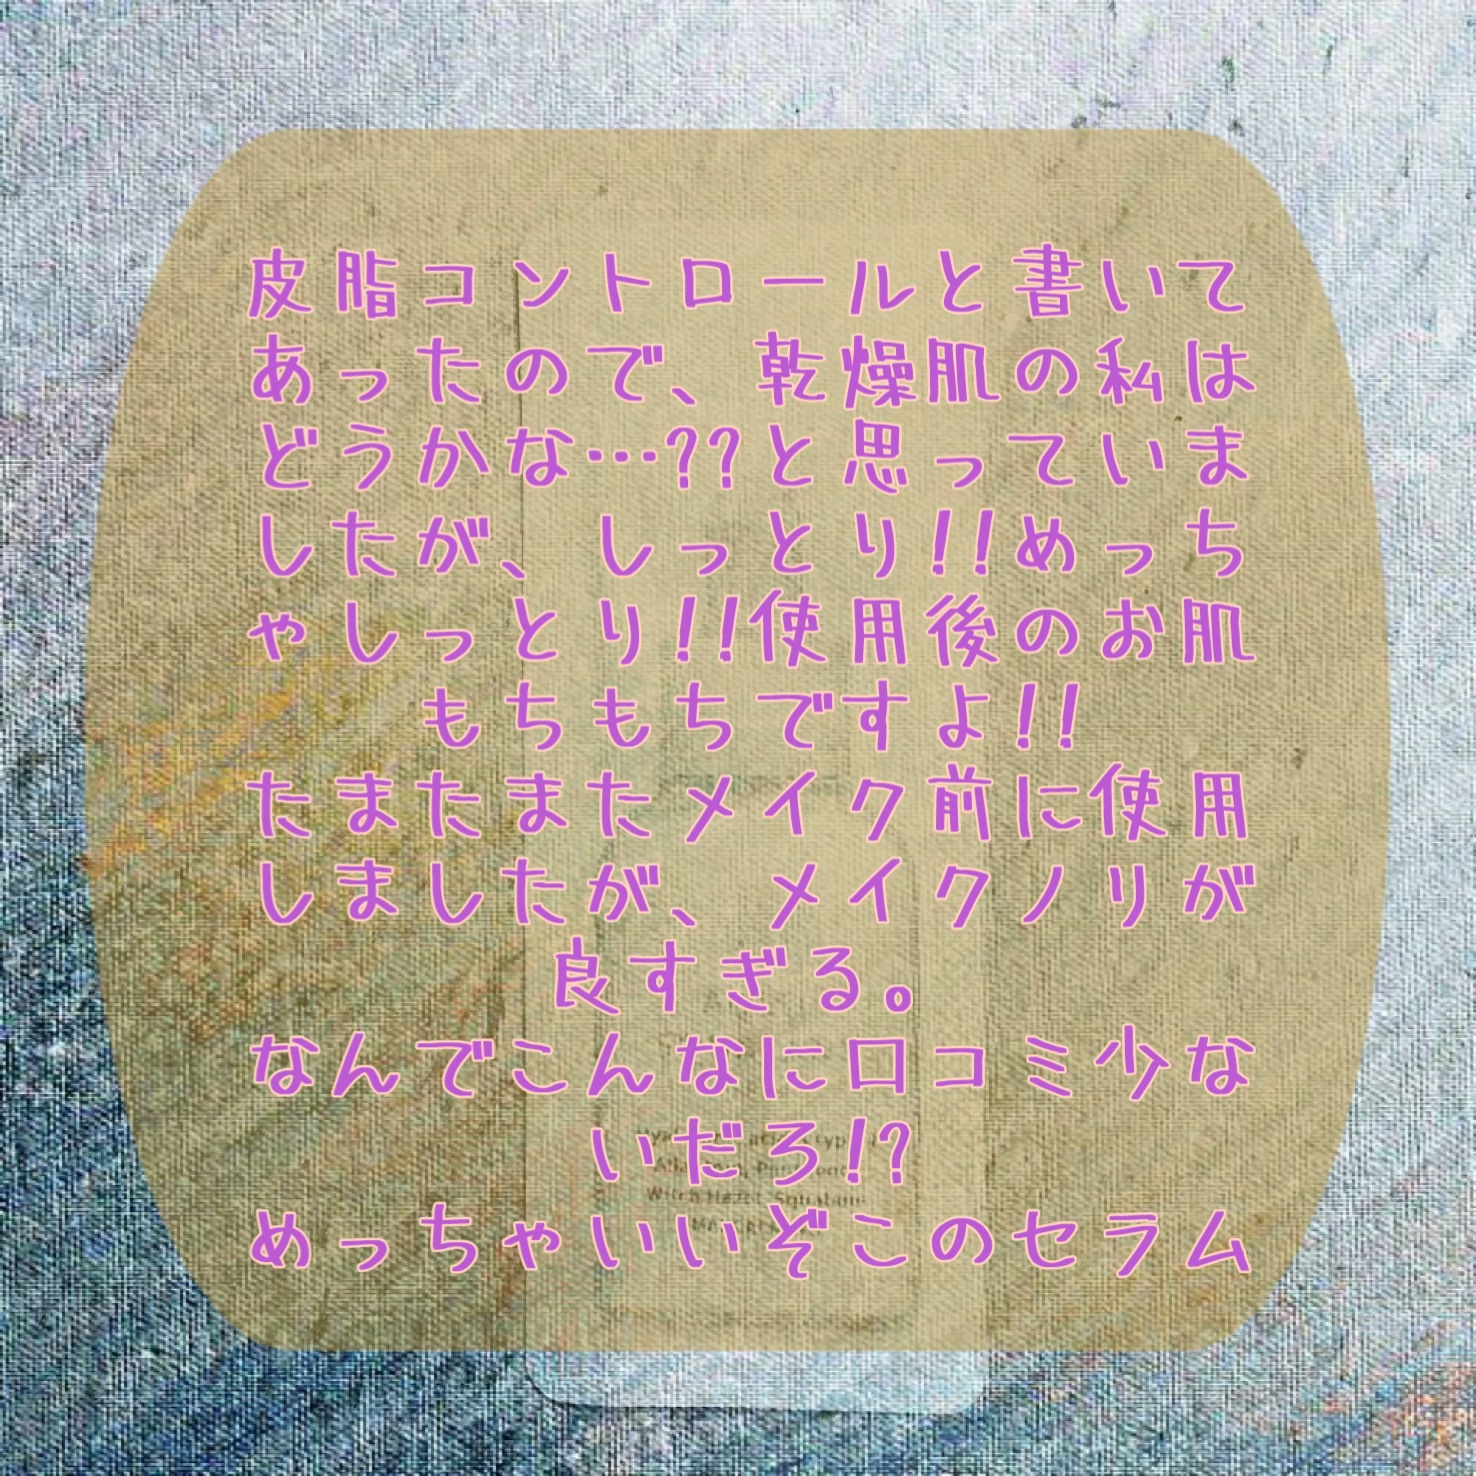 皮脂コントロールと書いて
あったので、乾燥肌の私は
どうかな…??と思っていま
したが、しっとり!!めっち
ゃしっとり!!使用後のお肌
もちもちですよ!!
たまたまたメイク前に使用
しましたが、メイクノリが
良すぎる。
なんでこんなに口コミ少な
いだろ!?
めっちゃいいぞこのセラム
Witch Hazel, Squalane